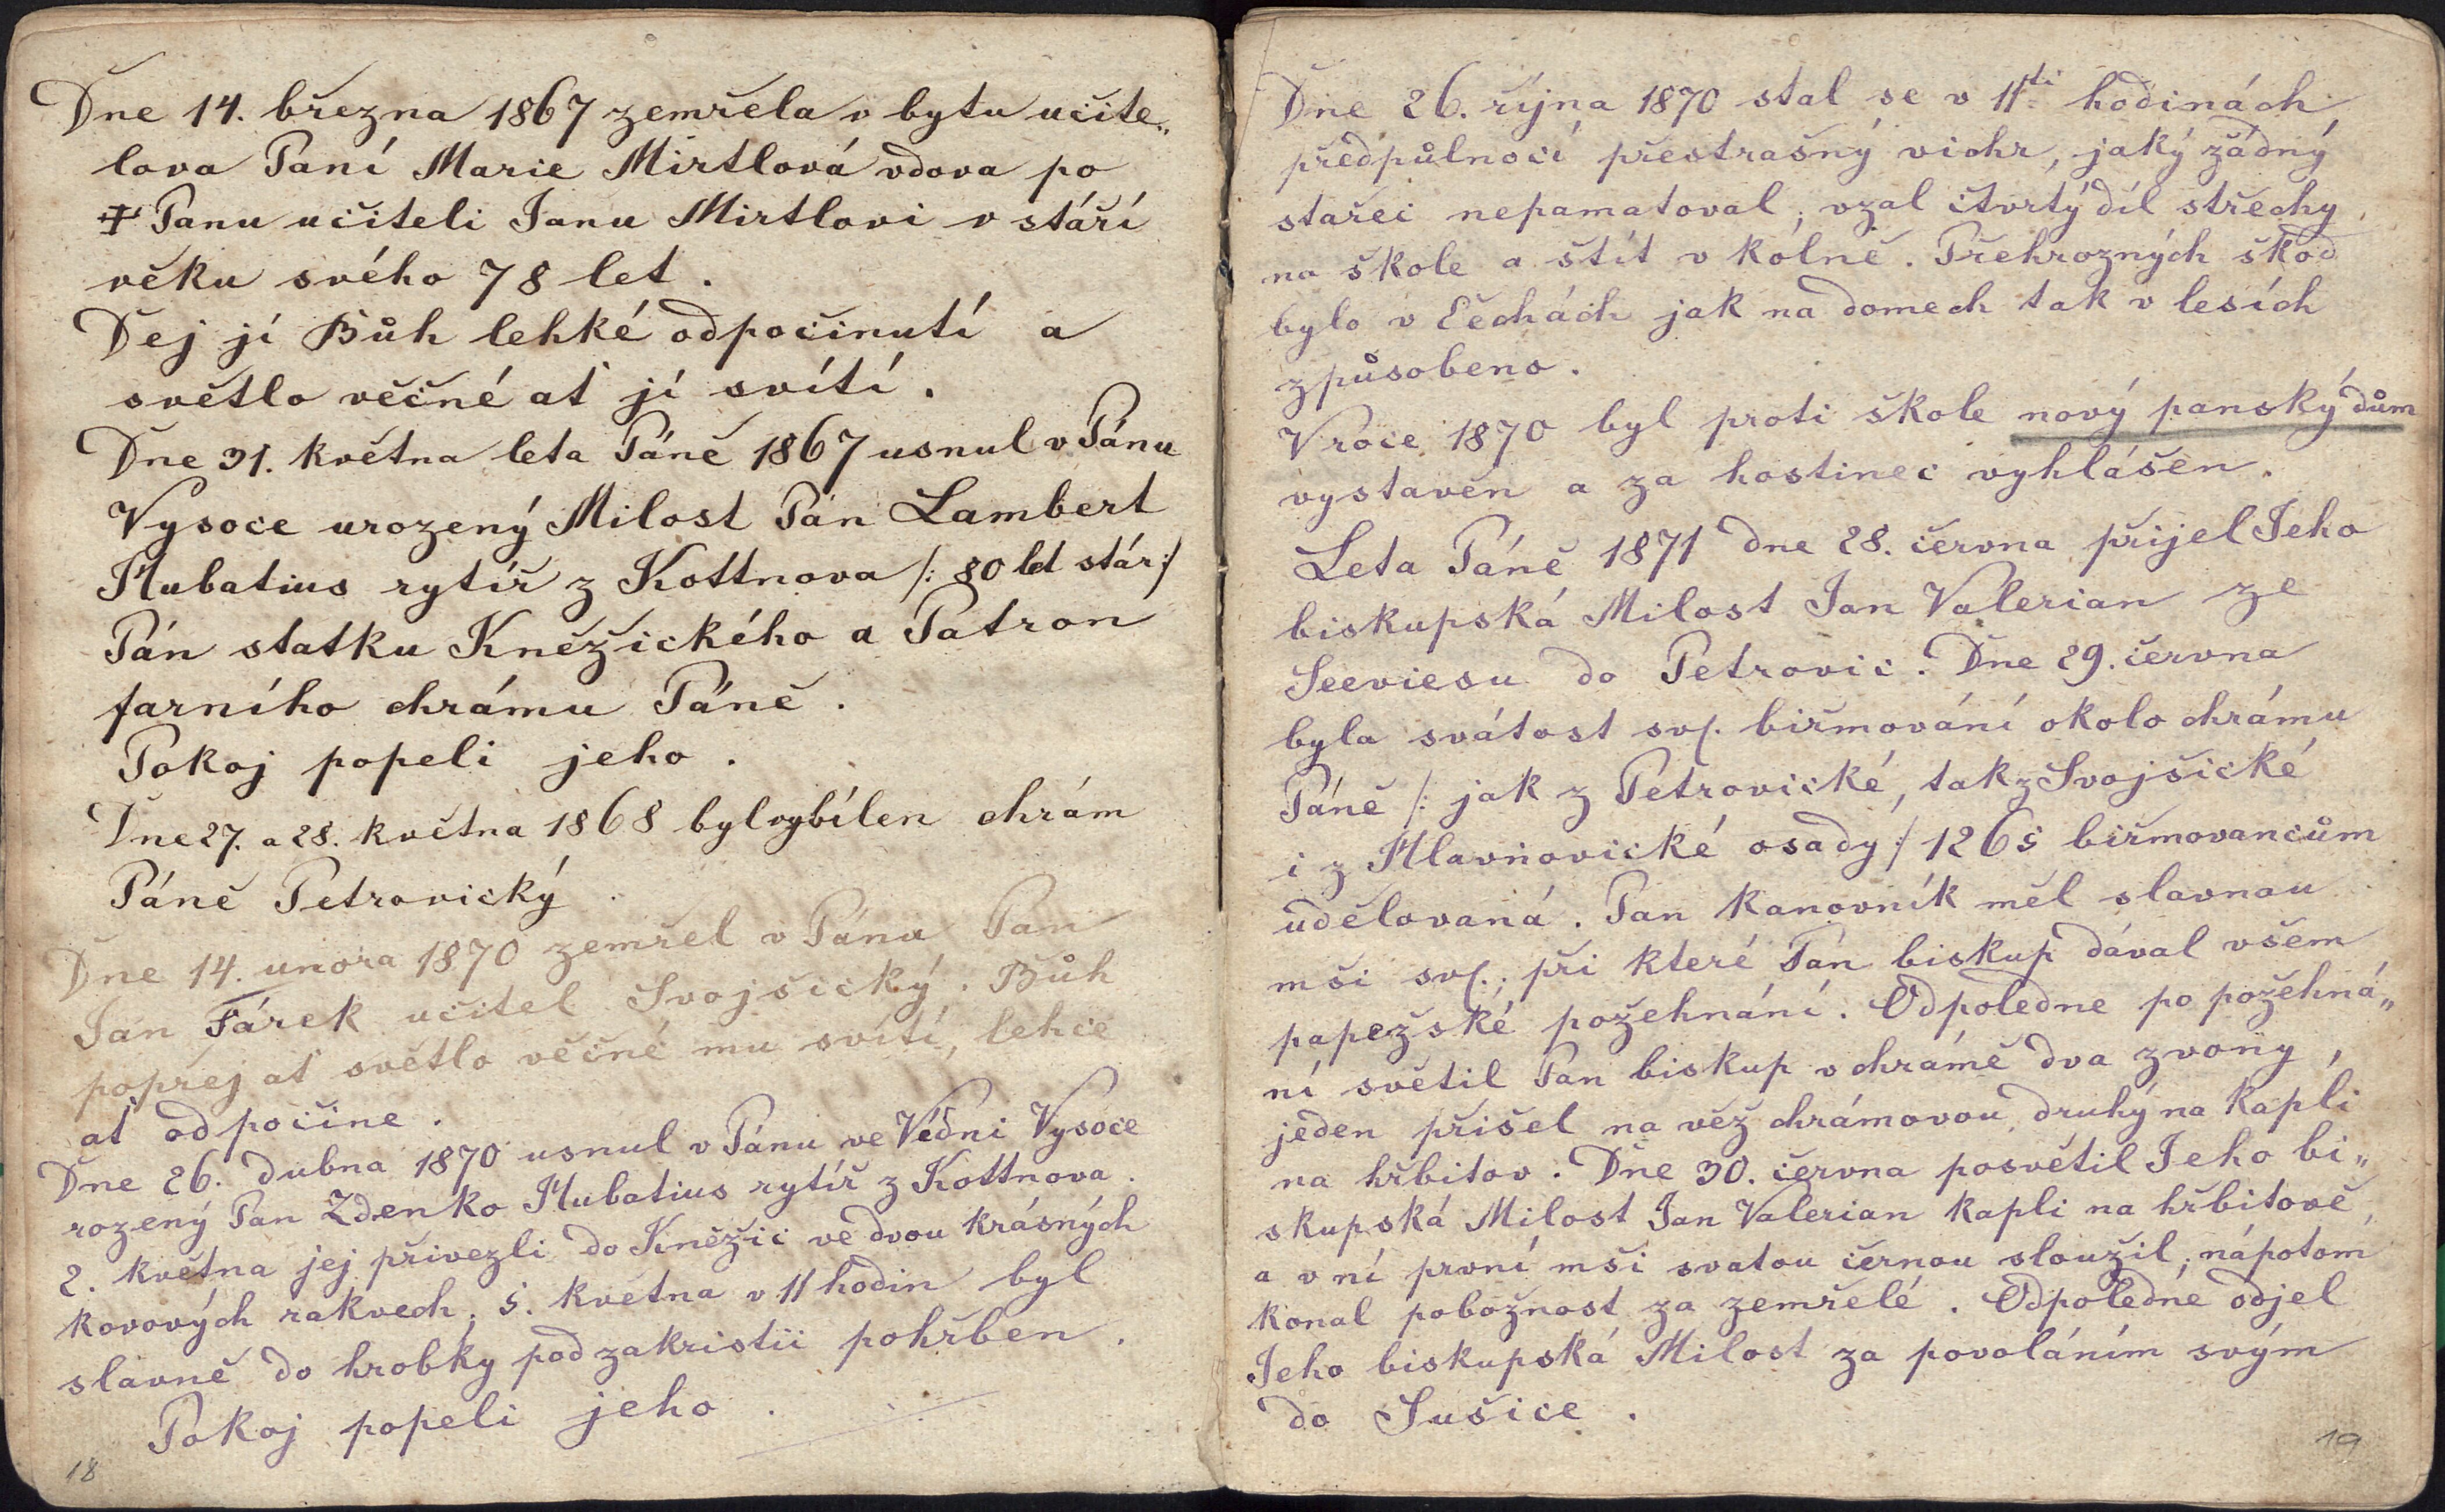 Dne 14. března 1867 zemřela v bytu učite„
lova Paní Marie Mirtlová vdova po
‡ Panu učiteli Janu Mirtlovi v stáří
věku svého 78 let.
Dej jí Bůh lehké odpočinutí a
světlo věčné ať jí svítí.
Dne 31. května leta Páně 1867 usnul v Pánu
Vysoce urozený Milost Pán Lambert
Hubatius rytíř z Kottnova /: 80 let stár :/
Pán statku Kněžického a Patron
farního chrámu Páně.
Pokoj popeli jeho.
Dne 27. a 28. května 1868 byl vybílen chrám
Páně Petrovický.
Dne 14. unora 1870 zemřel v Pánu Pan
Jan Fárek učitel Svojšický. Bůh
popřej ať světlo věčné mu svítí, lehce
ať odpočine.
Dne 26. dubna 1870 usnul v Pánu ve Vídni Vysoce
rozený Pan Zdenko Hubatius rytíř z Kottnova.
2. května jej přivezli do Kněžic ve dvou krásných
kovových rakvech; 5. května v 11 hodin byl
slavně do hrobky pod zakristii pohřben.
Pokoj popeli jeho.
18
Dne 26. října 1870 stal se v 11ti hodinách
předpůlnocí přestrašný vichr, jaký žádný
stařec nepamatoval; vzal čtvrtý díl střechy
na škole a štít v kólně. Přehrozných škod
bylo v Čechách jak na domech tak v lesích
způsobeno.
V roce 1870 byl proti škole nový panský dům
vystavěn a za hostinec vyhlášen.
Leta Páně 1871 dne 28. června přijel Jeho
biskupská Milost Jan Valerian ze
Seeviesu do Petrovic. Dne 29. června
byla svátost sv. biřmování okolo chrámu
Páně /: jak z Petrovické, tak z Svojšické
i z Hlavňovické osady :/ 1265 biřmovancům
udělovaná. Pan kanovník měl slavnou
mši sv.; při které Pán biskup dával všem
papežské požehnání. Odpoledne po požehná„
ní světil Pan biskup v chrámě dva zvony,
jeden přišel na věž chrámovou, druhý na kapli
na hřbitov. Dne 30. června posvětil Jeho bi„
skupská Milost Jan Valerian kapli na hřbitově,
a v ní první mši svatou černou sloužil; nápotom
konal pobožnost za zemřelé. Odpoledne odjel
Jeho biskupská Milost za povoláním svým
do Sušice.
19